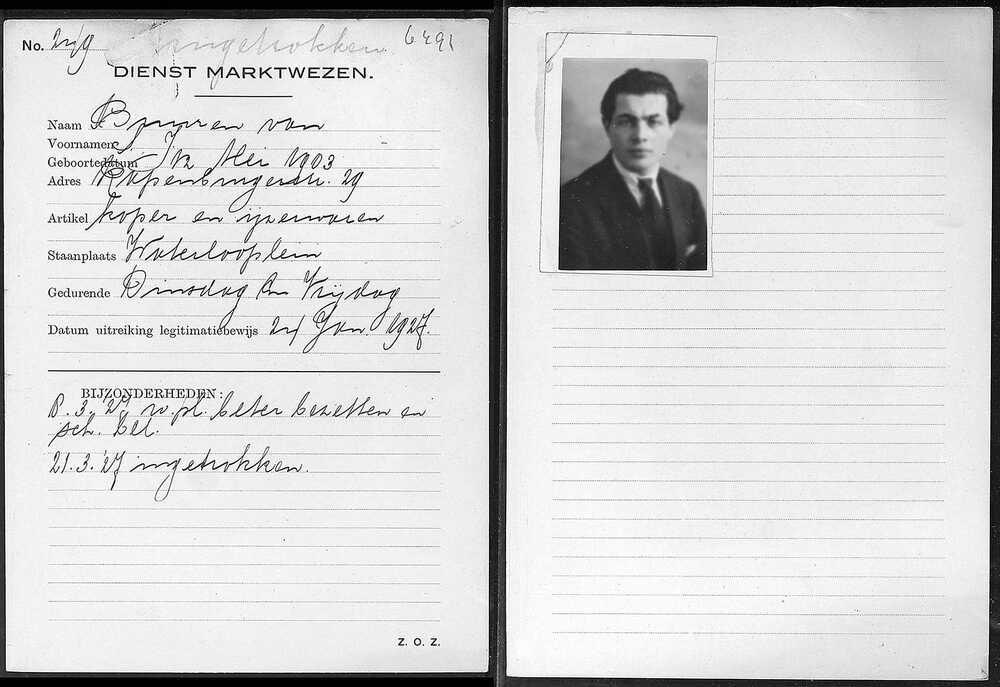 No. 249 Ingetrokken 6491
DIENST MARKTWEZEN.
Naam Buuren van
Voornamen
Geboortedatum 12 Mei 1903
Adres Rapenburgerstr. 29
Artikel koper en ijzerwaren
Staanplaats Waterlooplein
Gedurende Dinsdag en Vrijdag
Datum uitreiking legitimatiebewijs 24 Jan. 1927.
BIJZONDERHEDEN:
8.3.'27 w.pl. beter bezetten en
sch. bet.
21.3.'27 ingetrokken.
Z. O. Z.